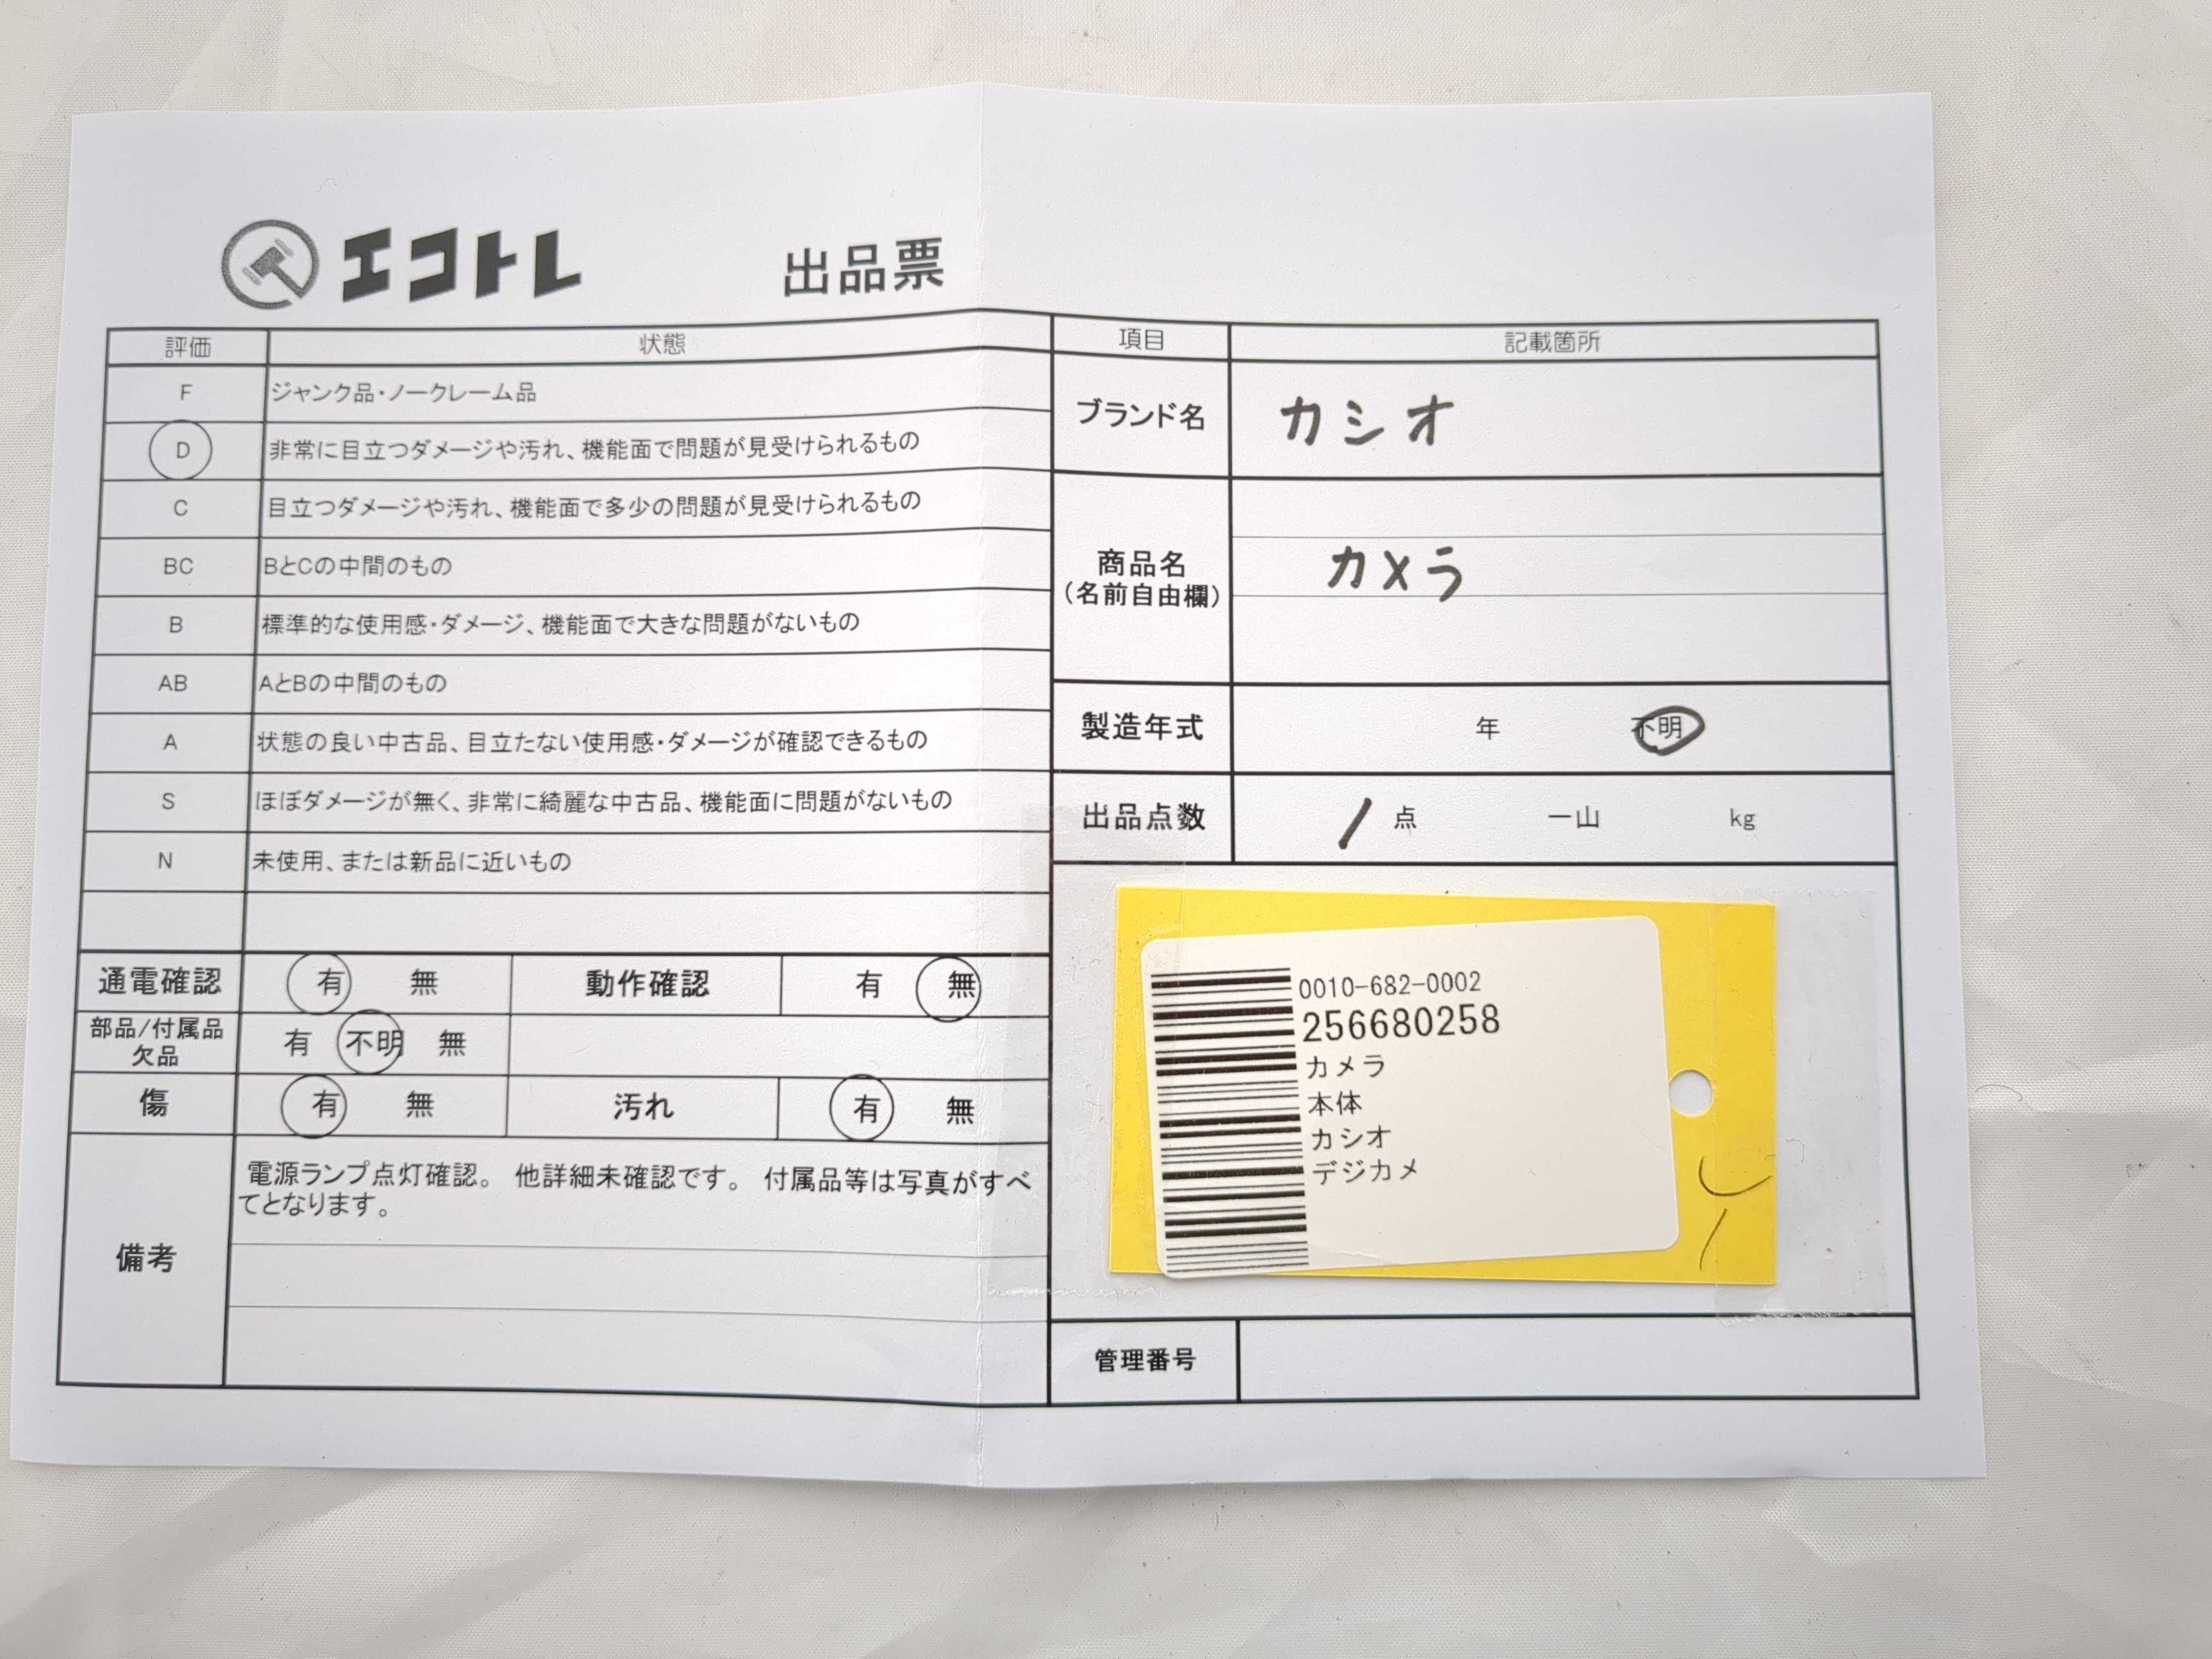 エコトレ 出品票
評価 状態
F ジャンク品・ノークレーム品
D 非常に目立つダメージや汚れ、機能面で問題が見受けられるもの
C 目立つダメージや汚れ、機能面で多少の問題が見受けられるもの
BC BとCの中間のもの
B 標準的な使用感・ダメージ、機能面で大きな問題がないもの
AB AとBの中間のもの
A 状態の良い中古品、目立たない使用感・ダメージが確認できるもの
S ほぼダメージが無く、非常に綺麗な中古品、機能面に問題がないもの
N 未使用、または新品に近いもの
通電確認 有 無 動作確認 有 無
部品/付属品
欠品 有 不明 無
傷 有 無 汚れ 有 無
備考
電源ランプ点灯確認。 他詳細未確認です。 付属品等は写真がすべ
てとなります。
項目 記載箇所
ブランド名 カシオ
商品名
(名前自由欄)
カメラ
製造年式 年 不明
出品点数 1 点 一山 kg
0010-682-0002
256680258
カメラ
本体
カシオ
デジカメ
管理番号